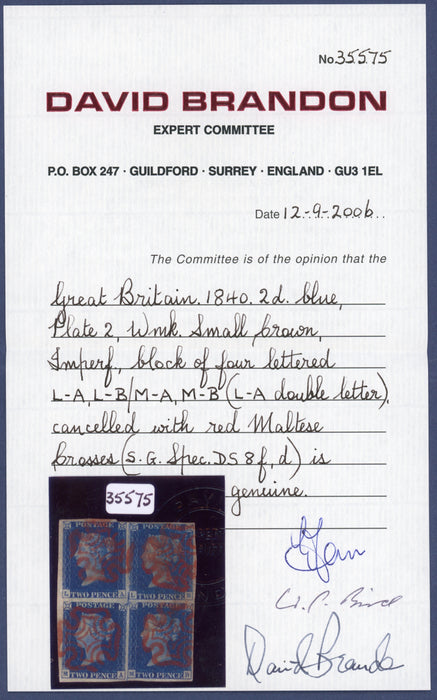 No 35575
DAVID BRANDON
EXPERT COMMITTEE
P.O. BOX 247 · GUILDFORD · SURREY · ENGLAND · GU3 1EL
Date 12-9-2006
The Committee is of the opinion that the
Great Britain. 1840. 2d. blue,
Plate 2, Wmk. Small Crown,
Imperf., block of four lettered
L-A, L-B/M-A, M-B (L-A double letter),
cancelled with red Maltese
Crosses (S.G. Spec. DS8f, d) is
genuine.
35575
POSTAGE POSTAGE
L TWO PENCE A L TWO PENCE B
POSTAGE POSTAGE
M TWO PENCE A M TWO PENCE B
David Brandon